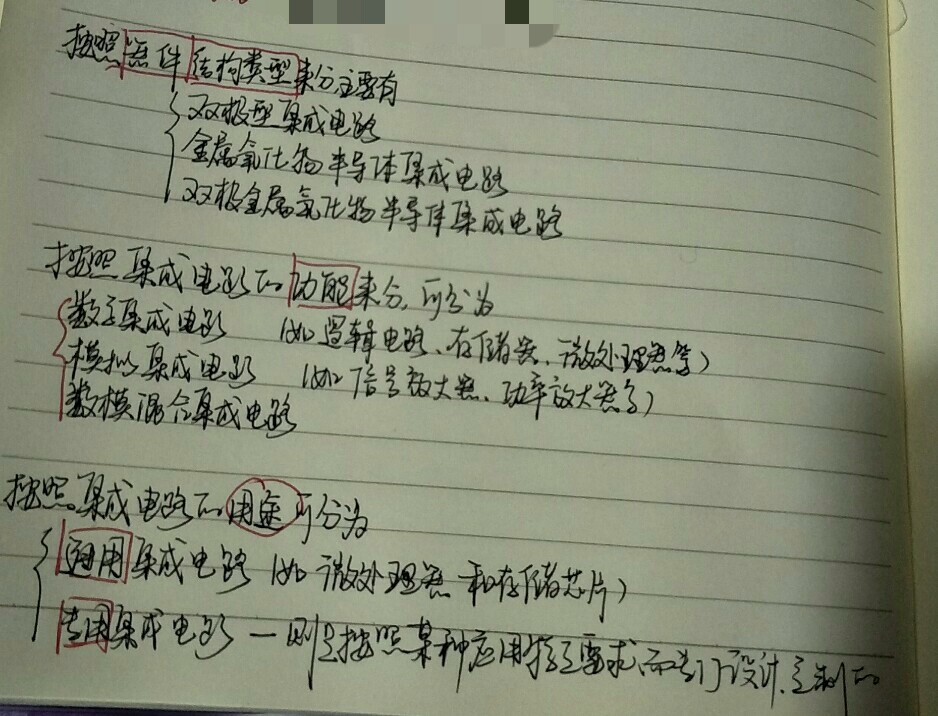 按照器件结构类型来分,主要有
双极型集成电路
金属氧化物半导体集成电路
双极金属氧化物半导体集成电路
按照集成电路的功能来分,可分为
数字集成电路 (如逻辑电路、存储器、微处理器等)
模拟集成电路 (如信号放大器、功率放大器等)
数模混合集成电路
按照集成电路的用途可分为
通用集成电路 (如微处理器和存储芯片)
专用集成电路 — 则是按照某种应用特定要求,而专门设计、定制的